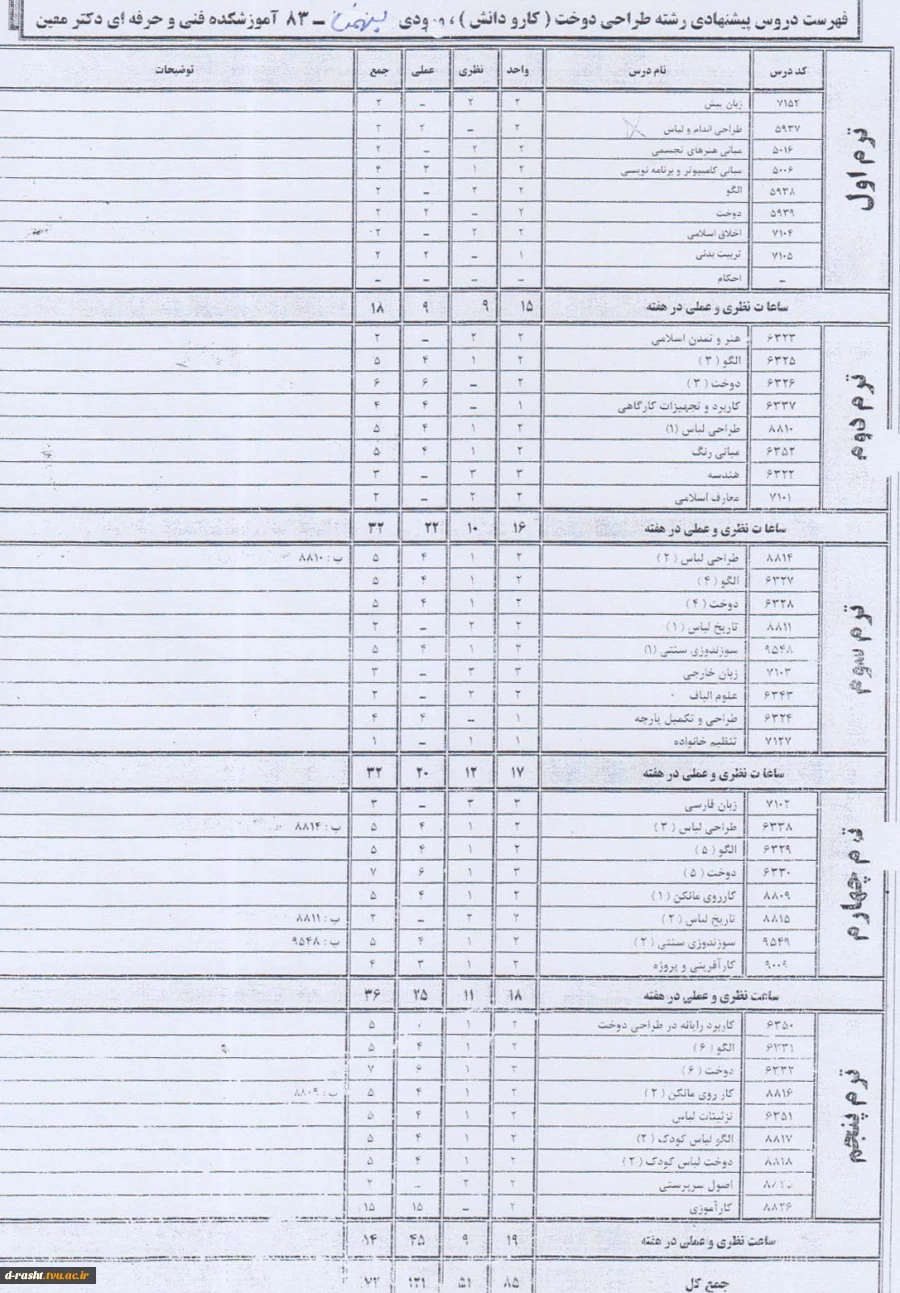 فهرست دروس پیشنهادی رشته طراحی دوخت ( کارو دانش ) ، ورودی بهمن – ۸۳ آموزشکده فنی و حرفه ای دکتر معین
کد درس نام درس واحد نظری عملی جمع توضیحات
ترم اول
۷۱۵۲ زبان پیش ۲ ۲ – ۲
۵۹۳۷ طراحی اندام و لباس ۲ – ۲ ۲
۵۰۱۶ مبانی هنرهای تجسمی ۲ ۲ – ۲
۵۰۰۶ مبانی کامپیوتر و برنامه نویسی ۲ ۱ ۳ ۴
۵۹۳۸ الگو ۲ ۲ – ۲
۵۹۳۹ دوخت ۲ – ۲ ۲
۷۱۰۴ اخلاق اسلامی ۲ ۲ – ۲
۷۱۰۵ تربیت بدنی ۱ – ۲ ۲
– احکام – – – –
ساعات نظری و عملی در هفته ۱۵ ۹ ۹ ۱۸
ترم دوم
۶۳۲۳ هنر و تمدن اسلامی ۲ ۲ – ۲
۶۳۲۵ الگو ( ۳ ) ۲ ۱ ۴ ۵
۶۳۲۶ دوخت ( ۳ ) ۲ – ۶ ۶
۶۳۳۷ کاربرد و تجهیزات کارگاهی ۱ – ۴ ۴
۸۸۱۰ طراحی لباس (۱) ۲ ۱ ۴ ۵
۶۳۵۲ مبانی رنگ ۲ ۱ ۴ ۵
۶۳۲۲ هندسه ۳ ۳ – ۳
۷۱۰۱ معارف اسلامی ۲ ۲ – ۲
ساعات نظری و عملی در هفته ۱۶ ۱۰ ۲۲ ۳۲
ترم سوم
۸۸۱۴ طراحی لباس ( ۲ ) ۲ ۱ ۴ ۵ پ : ۸۸۱۰
۶۳۲۷ الگو ( ۴ ) ۲ ۱ ۴ ۵
۶۳۲۸ دوخت ( ۴ ) ۲ ۱ ۴ ۵
۸۸۱۱ تاریخ لباس ( ۱ ) ۲ ۲ – ۲
۹۵۴۸ سوزندوزی سنتی (۱) ۲ ۱ ۴ ۵
۷۱۰۳ زبان خارجی ۳ ۳ – ۳
۶۳۴۳ علوم الیاف ۲ ۲ – ۲
۶۳۲۴ طراحی و تکمیل پارچه ۱ – ۴ ۴
۷۱۲۷ تنظیم خانواده ۱ ۱ – ۱
ساعات نظری و عملی در هفته ۱۷ ۱۲ ۲۰ ۳۲
ترم چهارم
۷۱۰۲ زبان فارسی ۳ ۳ – ۳
۶۳۳۸ طراحی لباس ( ۳ ) ۲ ۱ ۴ ۵ پ : ۸۸۱۴
۶۳۲۹ الگو ( ۵ ) ۲ ۱ ۴ ۵
۶۳۳۰ دوخت ( ۵ ) ۳ ۱ ۶ ۷
۸۸۰۹ کارروی مانکن ( ۱ ) ۲ ۱ ۴ ۵
۸۸۱۵ تاریخ لباس ( ۲ ) ۲ ۲ – ۲ پ : ۸۸۱۱
۹۵۴۹ سوزندوزی سنتی ( ۲ ) ۲ ۱ ۴ ۵ پ : ۹۵۴۸
۹۰۰۹ کارآفرینی و پروژه ۲ ۱ ۳ ۴
ساعت نظری و عملی در هفته ۱۸ ۱۱ ۲۵ ۳۶
ترم پنجم
۶۳۵۰ کاربرد رایانه در طراحی دوخت ۲ ۱ ۵
۶۳۳۱ الگو ( ۶ ) ۲ ۱ ۴ ۵
۶۳۳۲ دوخت ( ۶ ) ۳ ۱ ۶ ۷
۸۸۱۶ کار روی مانکن ( ۲ ) ۲ ۱ ۴ ۵ پ : ۸۸۰۹
۶۳۵۱ تزئینات لباس ۲ ۱ ۴ ۵
۸۸۱۷ الگو لباس کودک ( ۲ ) ۲ ۱ ۴ ۵
۸۸۱۸ دوخت لباس کودک ( ۲ ) ۲ ۱ ۴ ۵
اصول سرپرستی ۲ ۲ – ۲
۸۸۲۶ کارآموزی ۲ – ۱۵ ۱۵
ساعت نظری و عملی در هفته ۱۹ ۹ ۴۵ ۱۴
جمع کل ۸۵ ۵۱ ۱۲۱ ۷۲
d-rasht.tvu.ac.ir